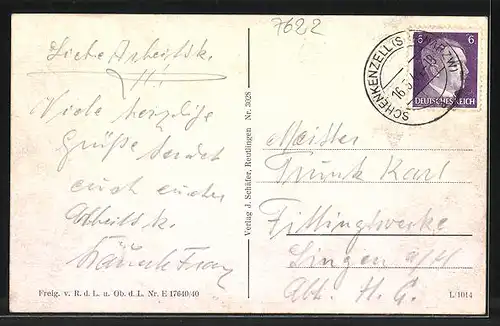 7622
Liebe Arbeitsk.
Viele herzliche
Grüße sendet
euch euer
Arbeitsk.
Franz
Freig. v. R. d. L. u. Ob. d. L. Nr. E 17640/40
Verlag J. Schäfer, Reutlingen Nr. 3028
SCHENKENZELL (SCHWARZW)
16.
6 6
DEUTSCHES REICH
Meister
Trunk Karl
Fittingswerke
Singen a/H
Abt. H. G.
L/1014